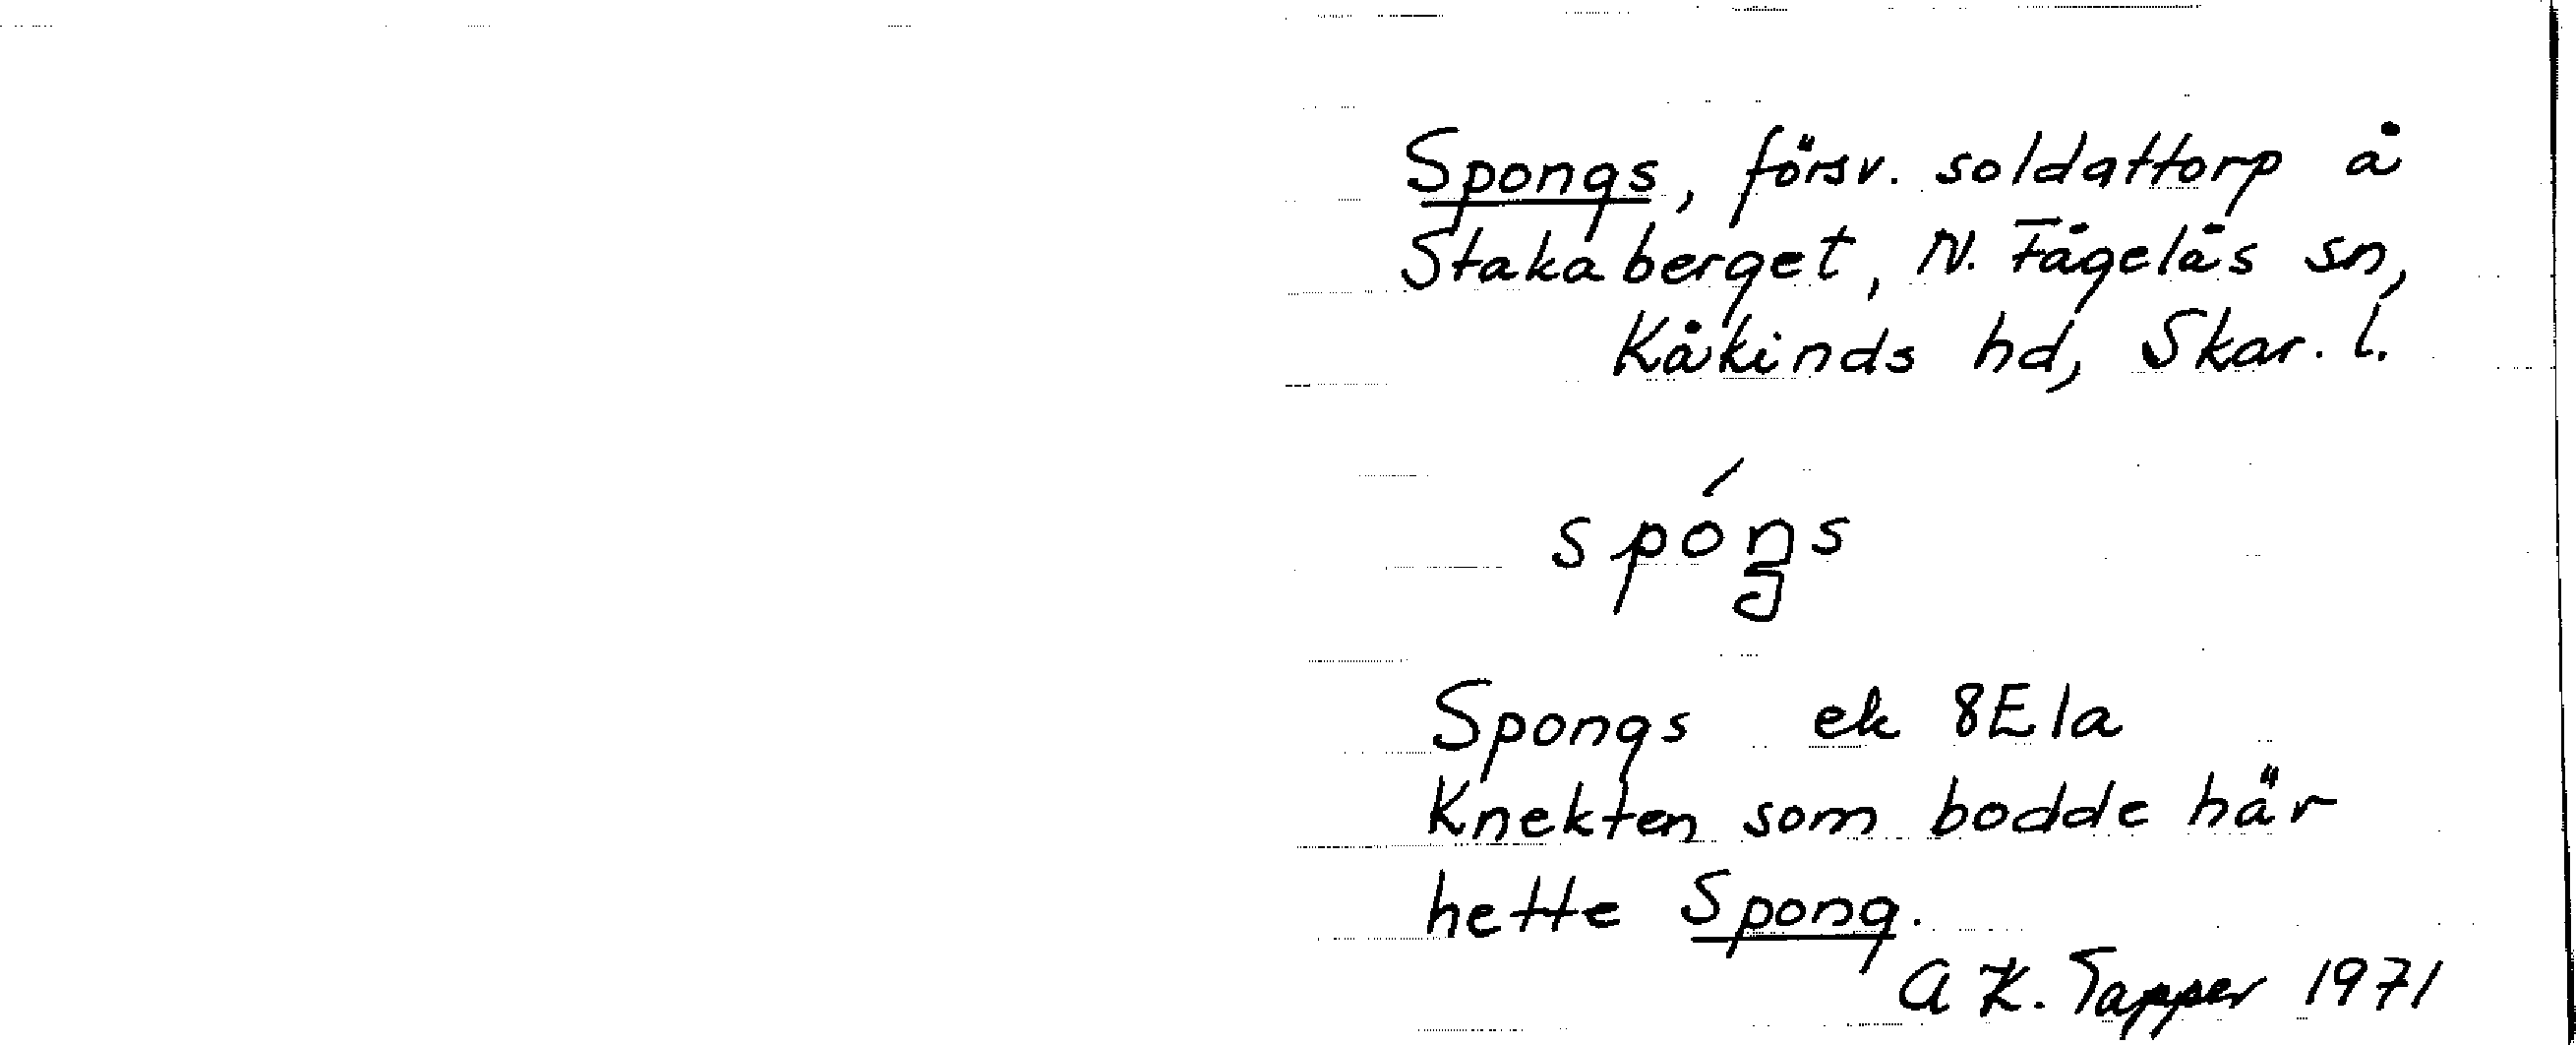 Spongs, försv. soldattorp å
Stakaberget, N. Fågelås sn,
Kåkinds hd, Skar. l.
spóŋs
Spongs ek 8E1a
Knekten som bodde här
hette Spong.
A K. Tapper 1971